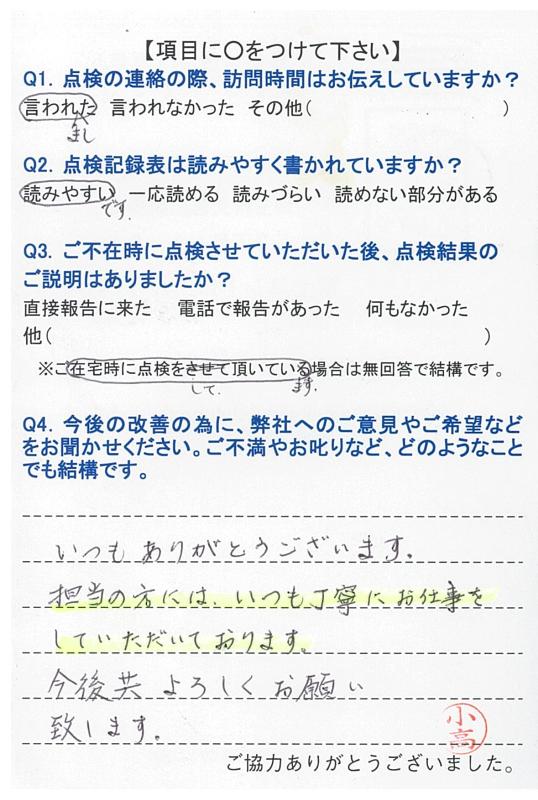 【項目に〇をつけて下さい】
Q1. 点検の連絡の際、訪問時間はお伝えしていますか？
言われた 言われなかった その他(　　　)
まし
Q2. 点検記録表は読みやすく書かれていますか？
読みやすい 一応読める 読みづらい 読めない部分がある
です.
Q3. ご不在時に点検させていただいた後、点検結果の
ご説明はありましたか？
直接報告に来た 電話で報告があった 何もなかった
他(　　　)
※ご在宅時に点検をさせて頂いている場合は無回答で結構です。
して. ます.
Q4. 今後の改善の為に、弊社へのご意見やご希望など
をお聞かせください。ご不満やお叱りなど、どのようなこと
でも結構です。
いつも ありがとうございます.
担当の方には. いつも丁寧に お仕事を
していただいて おります.
今後共 よろしく お願い
致します.
小高
ご協力ありがとうございました。